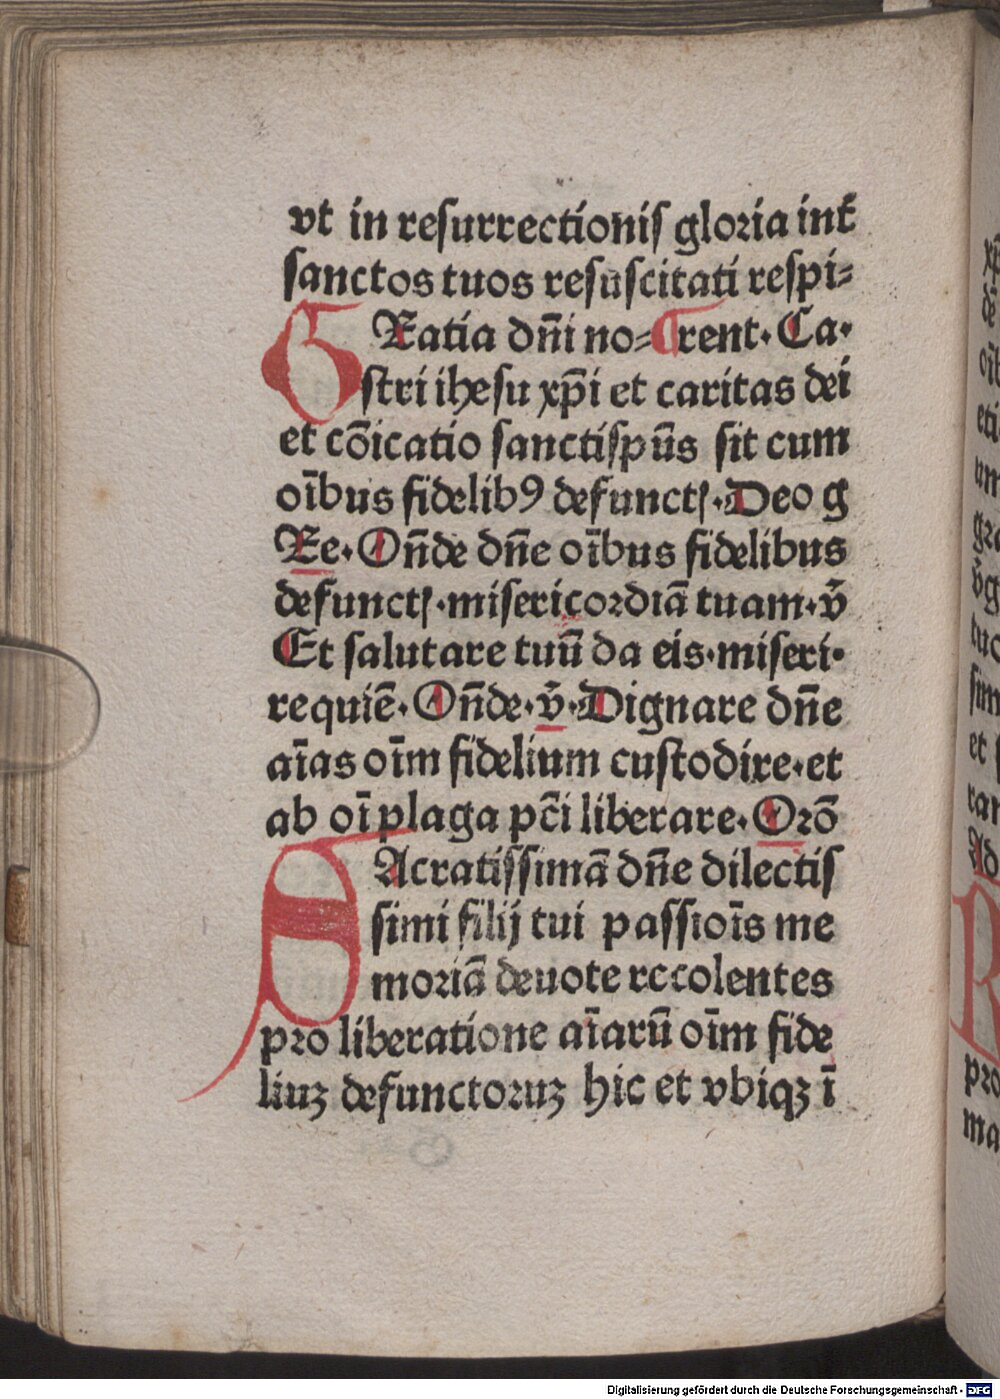 vt in resurrectionis gloria int̄
sanctos tuos resuscitati respi-
GRatia dn̄i no- rent. Ca.
stri ihesu xp̄i et caritas dei
et cōicatio sanctispūs sit cum
oībus fidelibꝰ defunctꝭ. Deo g
Re. On̄de dn̄e oībus fidelibus
defunctꝭ. misericordiā tuam. v̄
Et salutare tuū da eis. miseri.
requiē. On̄de. v̄. Dignare dn̄e
aīas oīm fidelium custodire. et
ab oī plaga pc̄i liberare. Orō
SAcratissimā dn̄e dilectis
simi filij tui passiōis me
moriā deuote recolentes
pro liberatione aīarū oīm fide
liuꝫ defunctoruꝫ hic et vbiqꝫ ī
Digitalisierung gefördert durch die Deutsche Forschungsgemeinschaft - DFG